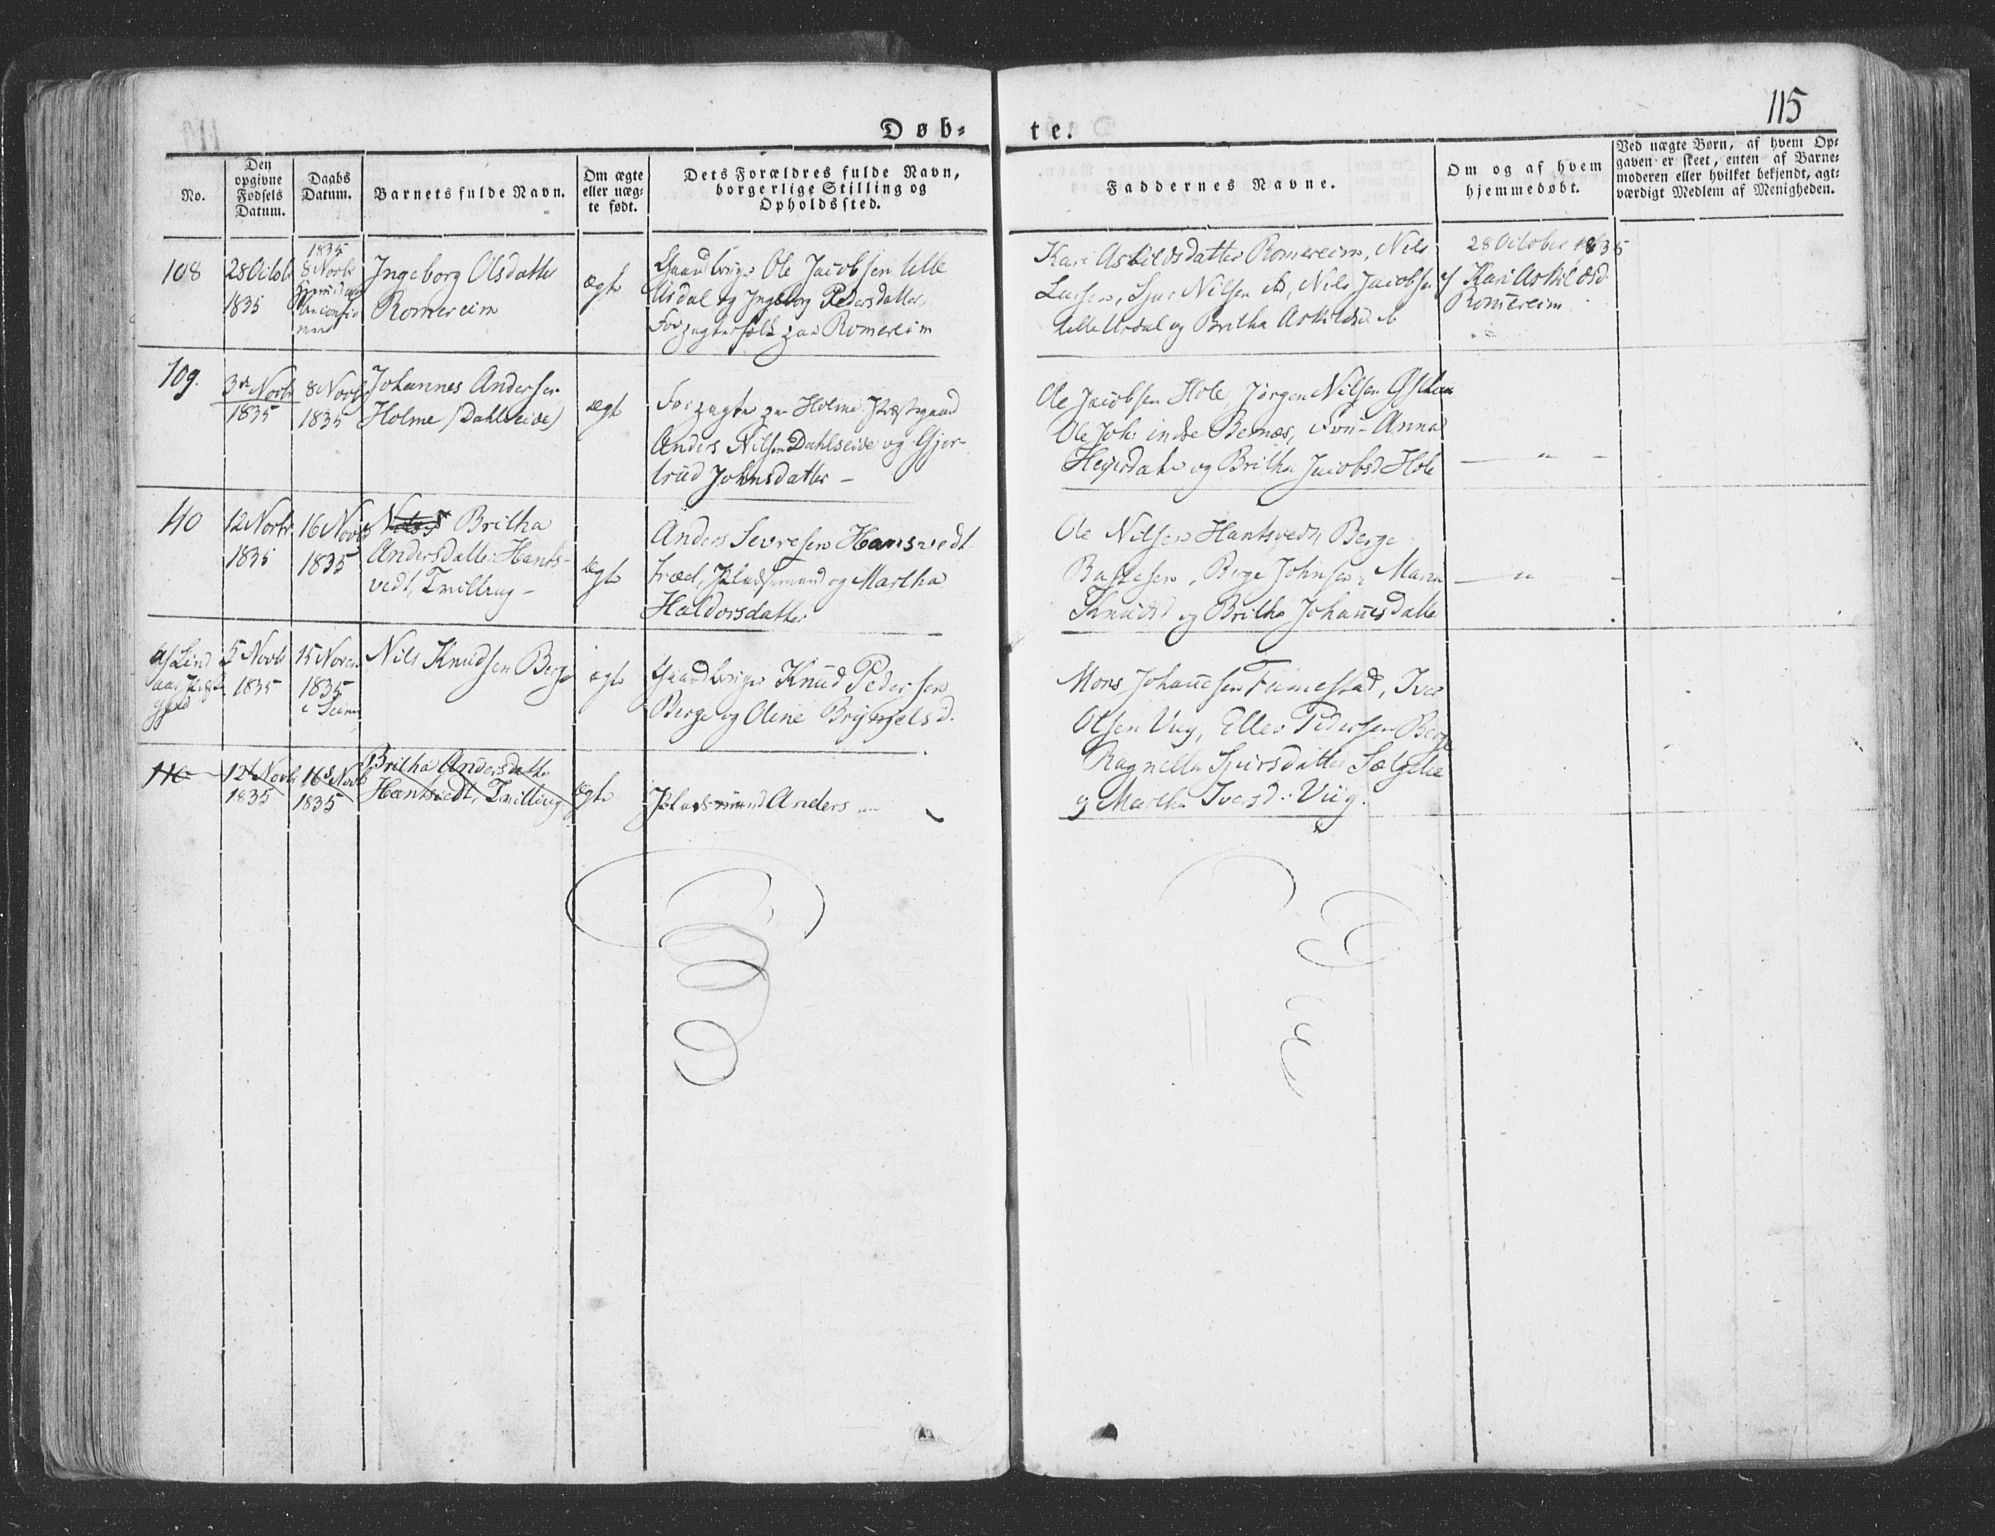 115
Døb-
te.
No.
Den
opgivne
Fødsels
Datum.
Daabs
Datum.
Barnets fulde Navn.
Om ægte
eller uæg-
te født.
Dets Forældres fulde Navn,
borgerlige Stilling og
Opholdssted.
Faddernes Navne.
Om og af hvem
hjemmedøbt.
Ved uægte Børn, af hvem Op-
gaven er skeet, enten af Barne-
moderen eller hvilket bekjendt, agt-
værdigt Medlem af Menigheden.
108
28 Octob
1835
1835
8 Novb
Ingeborg Olsdatter
Romereim
ægte
Gaardbruger Ole Jacobsen lille
Urdal og Ingeborg Pedersdatter
paa Romereim
Kari Askildsdatter Romereim, Nils
Nilsen Nils Jacobsen
lille Urdal og Britha Askildsd
28 October 1835
af Kari Askildsd
Romereim
109.
3de Novbr
1835
8 Novb
1835
Johannes Andersen
Holme (Dahlseide)
ægte
Holme Præstegaard
Anders Nilsen Dahlseide og Gjer-
trud Johnsdatter –
Ole Jacobsen Hole Jørgen Nilsen
Ole Joh: indre Bernæs, Anna
og Britha Jacobsd Hole
— " –
40
12 Novbr
1835
16 Novb
1835
Britha
Andersdatter Hants-
vedt, Tvilling –
ægte
Anders Hansvedt
træet, Pladsmand og Martha
Haldorsdatter
Ole Nilsen Hantsvedt, Berge
Berge Johnsen,
Knudsd og Britha Johannesdatter
— " –
af Lind
aas Præste
gjeld
5 Novb
1835
15 Novem
1835
i Seim
Nils Knudsen Berge
ægte
Gaardbruger Knud Pedersen
Berge og Oline Brynjelsd.
Mons Johannesen Fammestad, Iver
Olsen Viig, Elles Pedersen Berge
Ragnilla Sjursdatter
og Martha Iversd: Viig.
110
12t Novb
1835
16d Novb
1835
Britha Andersdatter
Hantsvedt, Tvilling
ægte
Pladsmand Anders